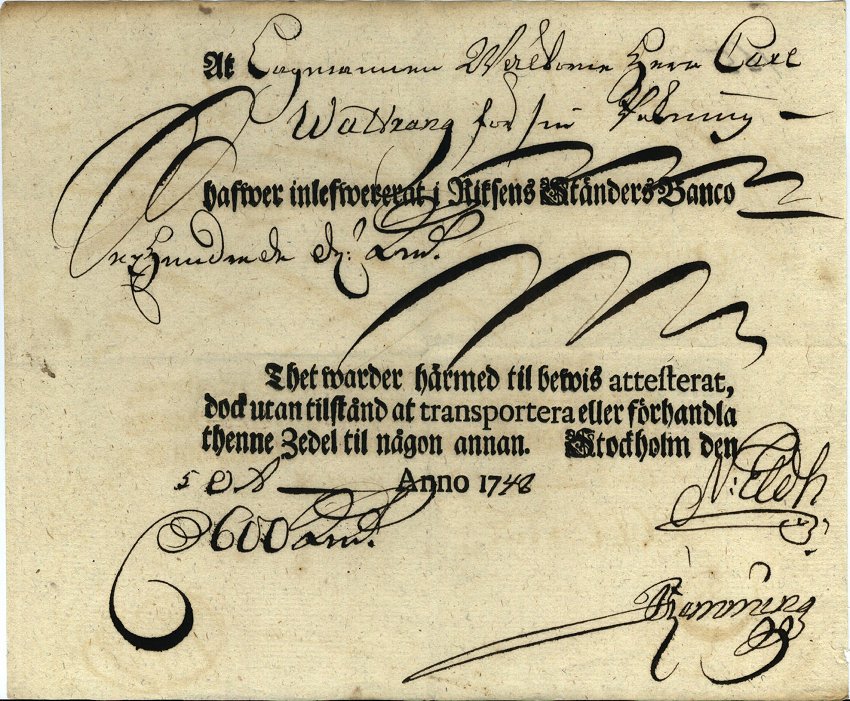 At Lagmannen Welborne Herr Carl
Wattrang for sin räkning
hafwer inlefwererat i Riksens Ständers Banco
Sexhundrade
Thet warder härmed til bewis attesterat,
dock utan tilstånd at transportera eller förhandla
thenne Zedel til någon annan. Stockholm den
5 Anno 1748
600
N: Eldh